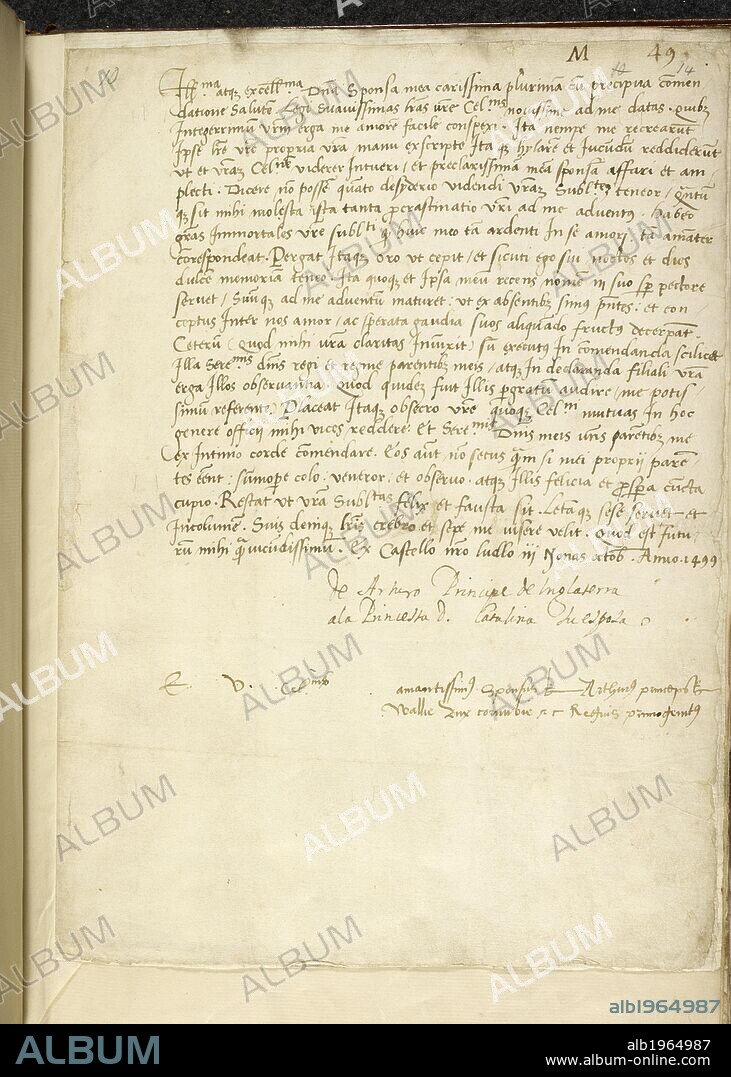 M 49
14
Ill.ma atq excell.ma Dna Sponsa mea carissima plurimā cū precipua comen
datione Salutē. Legi Suavissimas has vre Cel.nis novissime ad me datas. quibz
Integerrimū vrm erga me amorē facile conspexi. Ita nempe me recrearūt
Ipse lre vre propria vra manu exscripte Ita q hylarē et Iucundū reddiderūt
ut et vraz Cel.nē viderer Intueri / et preclarissimā meā sponsā affari et am
plecti. Dicere nō possē quāto desyderio videndi vraz Subl.tez teneor / quātū
q sit mihi molesta ista tanta pcrastinatio vri ad me adventꝰ. Habeo
gras Immortales vre subl.ti q huic meo tā ardenti In se amori tā amāter
correspondeat. Pergat Itaqz oro ut cepit / et sicuti ego sui noctes et dies
dulcē memoriā teneo. Ita quoqz et Ipsa meū recens nomē in suo sp pectore
servet / Suūqz ad me adventū maturet: ut ex absentibz simꝰ pntes: et con
ceptus Inter nos amor / ac sperata gaudia suos aliquādo fructꝰ decerpāt.
Ceterū (quod mihi vra claritas Iniunxit) sū executꝰ In comendanda scilicet
Illa Sere.mis dnis regi et regine parentibz meis / atqz In declaranda filiali vra
erga Illos observantia. Quod quidez fuit Illis pgratū audire / me potis
simū referente. Placeat Itaqz obsecro vre quoqz Cel.ni mutuas In hoc
genere officii mihi vices reddere. Et Sere.mis Dnis meis vris parētibz me
ex Intimo corde cōmendare. Eos aūt nō secus quam si mei proprii paren
tes eent: sūmope colo. veneror. et observo. atqz Illis felicia et pspa cūcta
cupio. Restat ut vra Subl.tas felix et fausta sit. Letamqz sese servet et
Incolumē. Suis deniqz lris crebro et sepe me visere velit. Quod est futu
rū mihi q iucundissimū. Ex Castello nro Ludlo iij Nonas octob. Anno. 1499
de Arturo Principe de Inglaterra
a la Princesa d. Catalina su esposa
E. V. Cel.nis
amantissimꝰ sponsus Arthurꝰ princeps
Wallie Dux cornubie Regius primogenitꝰ
ALBUM
alb1964987
ALBUM
alb1964987
www.album-online.com